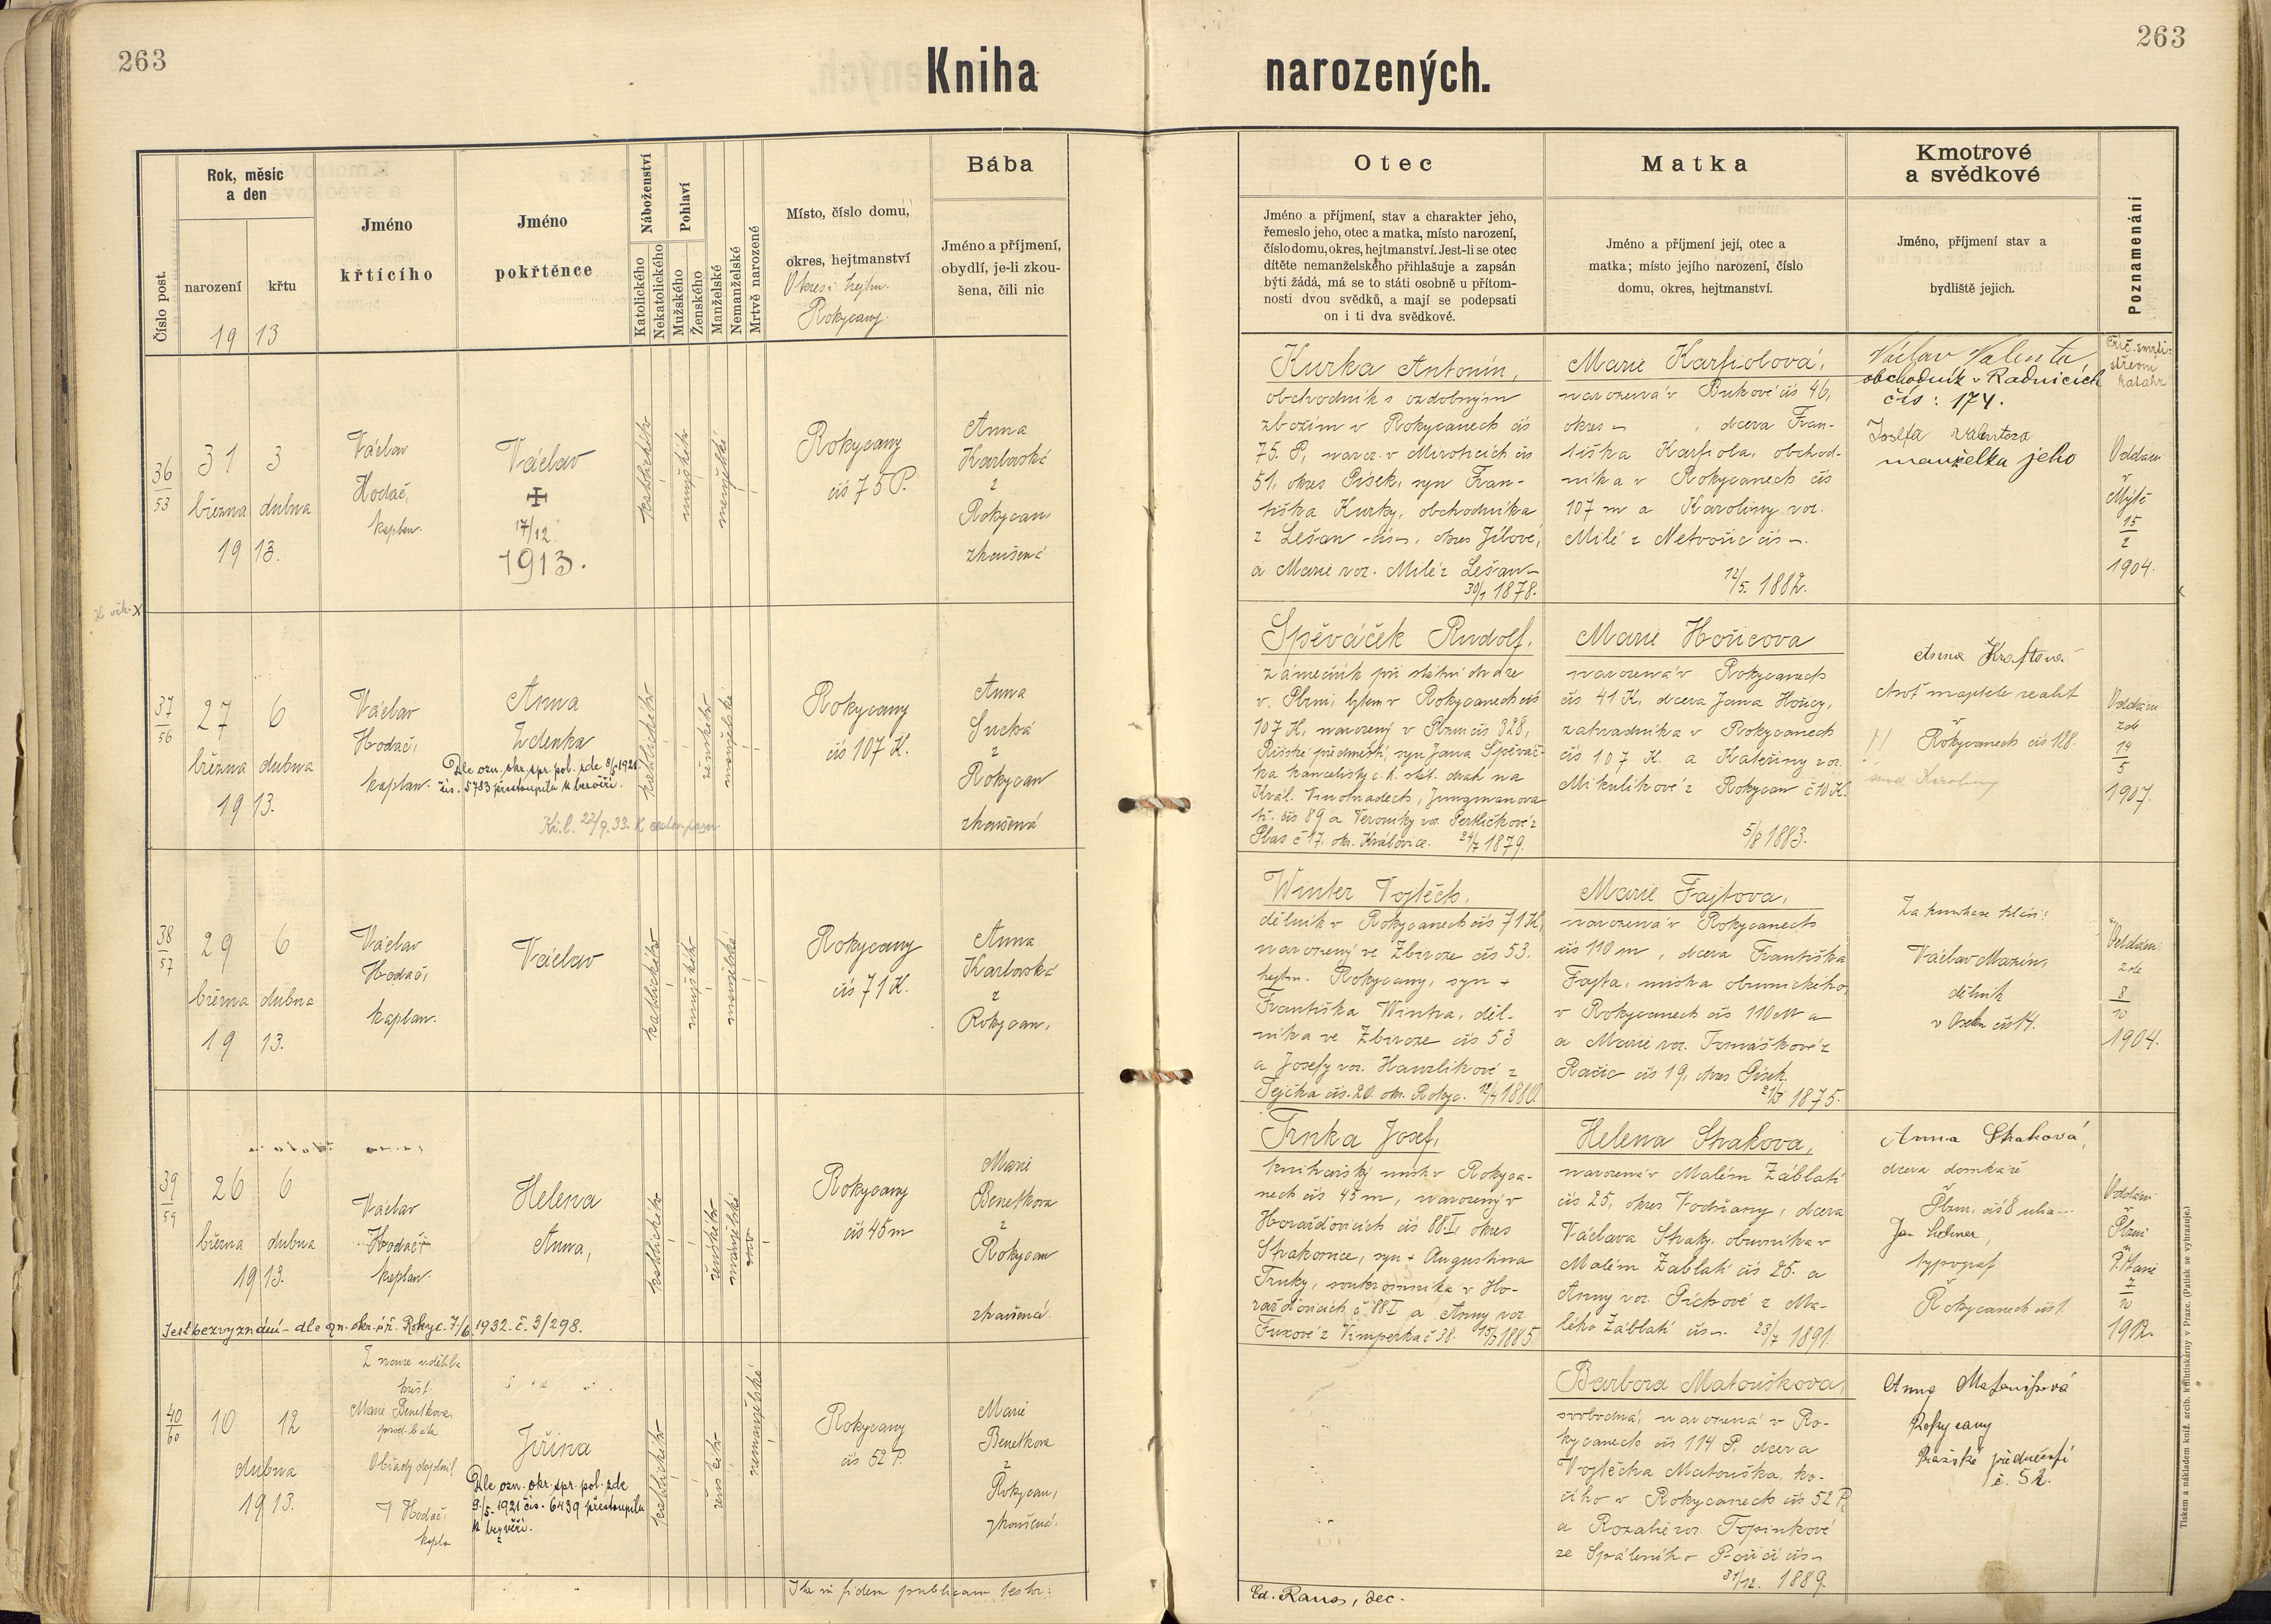 263
263
Kniha narozených.
Číslo post.
Rok, měsíc
a den
narození
křtu
19 13
Jméno
křtícího
Jméno
pokřtěnce
Náboženství
Katolického
Nekatolického
Pohlaví
Mužského
Ženského
Manželské
Nemanželské
Mrtvě narozené
Místo, číslo domu,
okres, hejtmanství
Okres i hejtm.
Rokycany.
Bába
Jméno a příjmení,
obydlí, je-li zkou-
šena, čili nic
Otec
Jméno a příjmení, stav a charakter jeho,
řemeslo jeho, otec a matka, místo narození,
číslo domu, okres, hejtmanství. Jest-li se otec
dítěte nemanželského přihlašuje a zapsán
býti žádá, má se to státi osobně u přítom-
nosti dvou svědků, a mají se podepsati
on i ti dva svědkové.
Matka
Jméno a příjmení její, otec a
matka; místo jejího narození, číslo
domu, okres, hejtmanství.
Kmotrové
a svědkové
Jméno, příjmení stav a
bydliště jejich.
Poznamenání
36
53
31 3
března dubna
19 13.
Václav
Hodač,
kaplan.
Václav
17/12
1913.
katolického
mužského
manželské
Rokycany
čís 75 P.
Anna
Karlovská
z
Rokycan
zkoušená
Kurka Antonín,
obchodník s ozdobným
zbožím v Rokycanech čís
75. P, naroz. v Miroticích čís
51, okres Písek, syn Fran-
tiška Kurky, obchodníka
z Lešan čís –, okres Jílové,
a Marie roz. Milé z Lešan –
30/1 1878.
Marie Karfiolová,
narozená v Bukové čís 46,
okres – , dcera Fran-
tiška Karfiola, obchod-
níka v Rokycanech čís
107 m a Karoliny roz.
Milé z Netvořic čís –.
12/5. 1882.
Václav Valenta
obchodník v Radnicích
čís: 174.
Josefa Valentova
manželka jeho
Oddáni
v
Mýtě
15
2
1904.
37
56
27 6
března dubna
19 13.
Václav
Hodač,
kaplan.
Anna
Zdenka
Dle ozn. okr. spr. pol. zde 8/5 1921
čís. 5783 přestoupila k bezvěří.
katolického
ženského
manželské
Rokycany
čís 107 K.
Anna
Suchá
z
Rokycan
zkoušená
Spěváček Rudolf,
zámečník při státní dráze
v Plzni, bytem v Rokycanech čís
107 K, narozený v Plzni čís 328,
Říšské předměstí, syn Jana Spěváč-
ka kancelisty c. k. stát. drah na
Král. Vinohradech, Jungmanova
tř. čís 89 a Veroniky roz. Pertličkové z
Plas č 17, okr. Kralovice. 24/7 1879.
Marie Hořicova
narozená v Rokycanech
čís 41 K, dcera Jana Hořicy,
zahradníka v Rokycanech
čís 107 K. a Kateřiny roz.
Mikulíkové z Rokycan č 10 K.
5/8 1883.
Anna Kraftová
choť majitele realit
v
Rokycanech čís 128.
Oddáni
zde
14
5
1907.
38
57
29 6
března dubna
19 13.
Václav
Hodač,
kaplan.
Václav
katolického
mužského
manželské
Rokycany
čís 71 K.
Anna
Karlovská
z
Rokycan,
Winter Vojtěch,
dělník v Rokycanech čís 71 K,
narozený ve Zbiroze čís 53.
hejtm. Rokycany, syn +
Františka Wintra, děl-
níka ve Zbiroze čís 53
a Josefy roz. Hanzlíkové z
Tejčka čís. 20. okr. Rokyc. 12/4 1880.
Marie Fajtova,
narozená v Rokycanech
čís 110 m, dcera Františka
Fajta, mistra obuvnického,
v Rokycanech čís 110 m
a Marie roz. Tomáškové z
Račic čís 19, okres Písek.
21/3 1875.
Václav Mazín,
dělník
v Oseku čís 14.
Oddáni
zde
8
10
1904.
39
59
26 6
března dubna
19 13.
Václav
Hodač,
kaplan.
Helena
Anna,
Jest bez vyznání – dle ozn. okr. úř. Rokyc. 7/6 1932. č. 3/298.
katolického
ženského
manželské
Rokycany
čís 45 m
Marie
Benetkova
z
Rokycan
zkoušená.
Trnka Josef,
knihařský mistr v Rokyca-
nech čís 45 m, narozený v
Horažďovicích čís 88. I, okres
Strakonice, syn + Augustina
Trnky, soukromníka v Ho-
ražďovicích č. 88 I a Anny roz.
Fuxové z Vimperka č 38. 15/3 1885.
Helena Strakova,
narozená v Malém Záblatí
čís 25, okres Vodňany, dcera
Václava Straky, obuvníka v
Malém Záblatí čís 25. a
Anny roz. Píchové z Ma-
lého Záblatí čís –. 23/7 1891.
Anna Straková,
dcera domkáře
typograf
Oddáni
v
Plzni
7
10
1912.
40
60
10 12
dubna
19 13.
Z nouze udělila
křest
Marie Benetkova,
Obřady doplnil
V Hodač,
kapla
Jiřina
Dle ozn. okr. spr. pol. zde
9./5. 1921 čís. 6439 přestoupila
k bezvěří.
katolického
ženského
nemanželské
Rokycany
čís 52 P.
Marie
Benetkova
z
Rokycan,
zkoušená.
Barbora Matouškova,
svobodná, narozená v Ro-
kycanech čís 114 P, dcera
Vojtěcha Matouška, ko-
čího v Rokycanech čís 52 P,
a Rozalie roz. Topinkové
ze Spáleního Poříčí čís –
31/12. 1889.
Anna Matoušková
Rokycany
Pražské předměstí
č. 52.
Ita in fidem publicam testor:
Ed. Raus, dec.
Tiskem a nákladem kníž. arcib. knihtiskárny v Praze. (Patisk se vyhrazuje.)